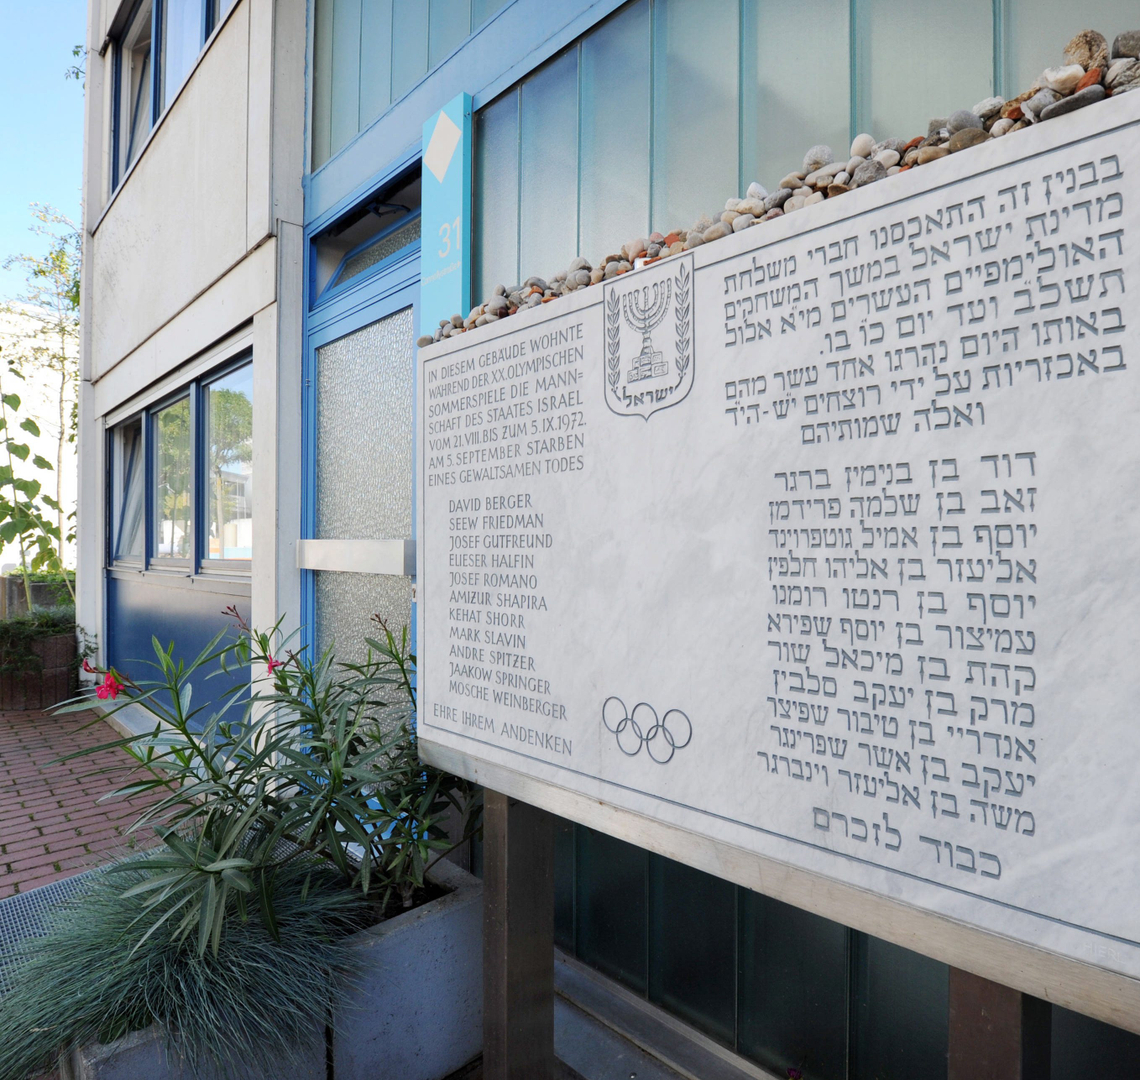 31
IN DIESEM GEBÄUDE WOHNTE
WÄHREND DER XX. OLYMPISCHEN
SOMMERSPIELE DIE MANN=
SCHAFT DES STAATES ISRAEL
VOM 21. VIII. BIS ZUM 5. IX. 1972.
AM 5. SEPTEMBER STARBEN
EINES GEWALTSAMEN TODES
DAVID BERGER
SEEW FRIEDMAN
JOSEF GUTFREUND
ELIESER HALFIN
JOSEF ROMANO
AMIZUR SHAPIRA
KEHAT SHORR
MARK SLAVIN
ANDRE SPITZER
JAAKOW SPRINGER
MOSCHE WEINBERGER
EHRE IHREM ANDENKEN
ישראל
בבנין זה התאכסנו חברי משלחת
מדינת ישראל במשך המשחקים
האולימפיים העשרים מי״א אלול
תשל״ב ועד יום כ״ו בו.
באותו היום נהרגו אחד עשר מהם
באכזריות על ידי רוצחים יש-הי״ד
ואלה שמותיהם
דוד בן בנימין ברגר
זאב בן שלמה פרידמן
יוסף בן אמיל גוטפרוינד
אליעזר בן אליהו חלפין
יוסף בן רנטו רומנו
עמיצור בן יוסף שפירא
קהת בן מיכאל שור
מרק בן יעקב סלבין
אנדריי בן טיבור שפיצר
יעקב בן אשר שפרינגר
משה בן אליעזר וינברגר
כבוד לזכרם